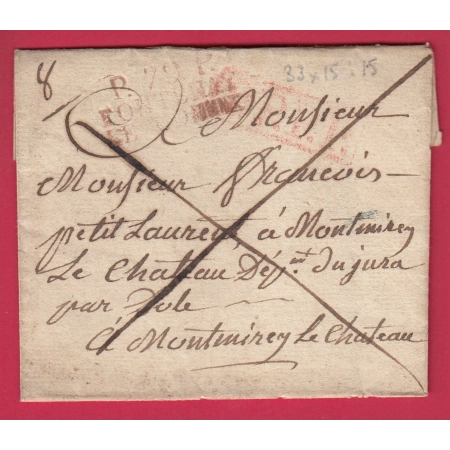 8
P. 79 P.
33 x 15 : 15
Monsieur
Monsieur francois
petit Laurent à Montmirey
Le Chatteau Dép.nt Du jura
par Dole
à Montmirey Le Chateau